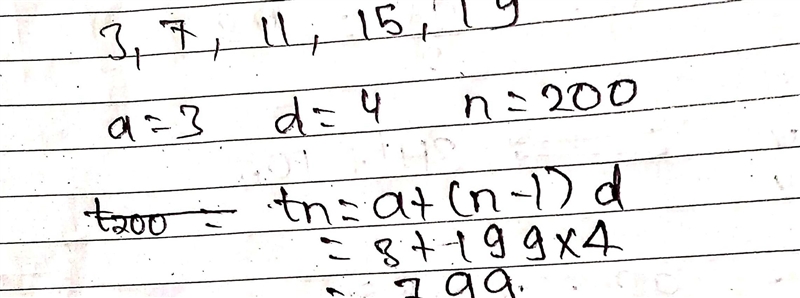 3, 7, 11, 15, 19
a = 3 d = 4 n = 200
t200 = tn = a + (n - 1) d
= 3 + 199 × 4
= 799.